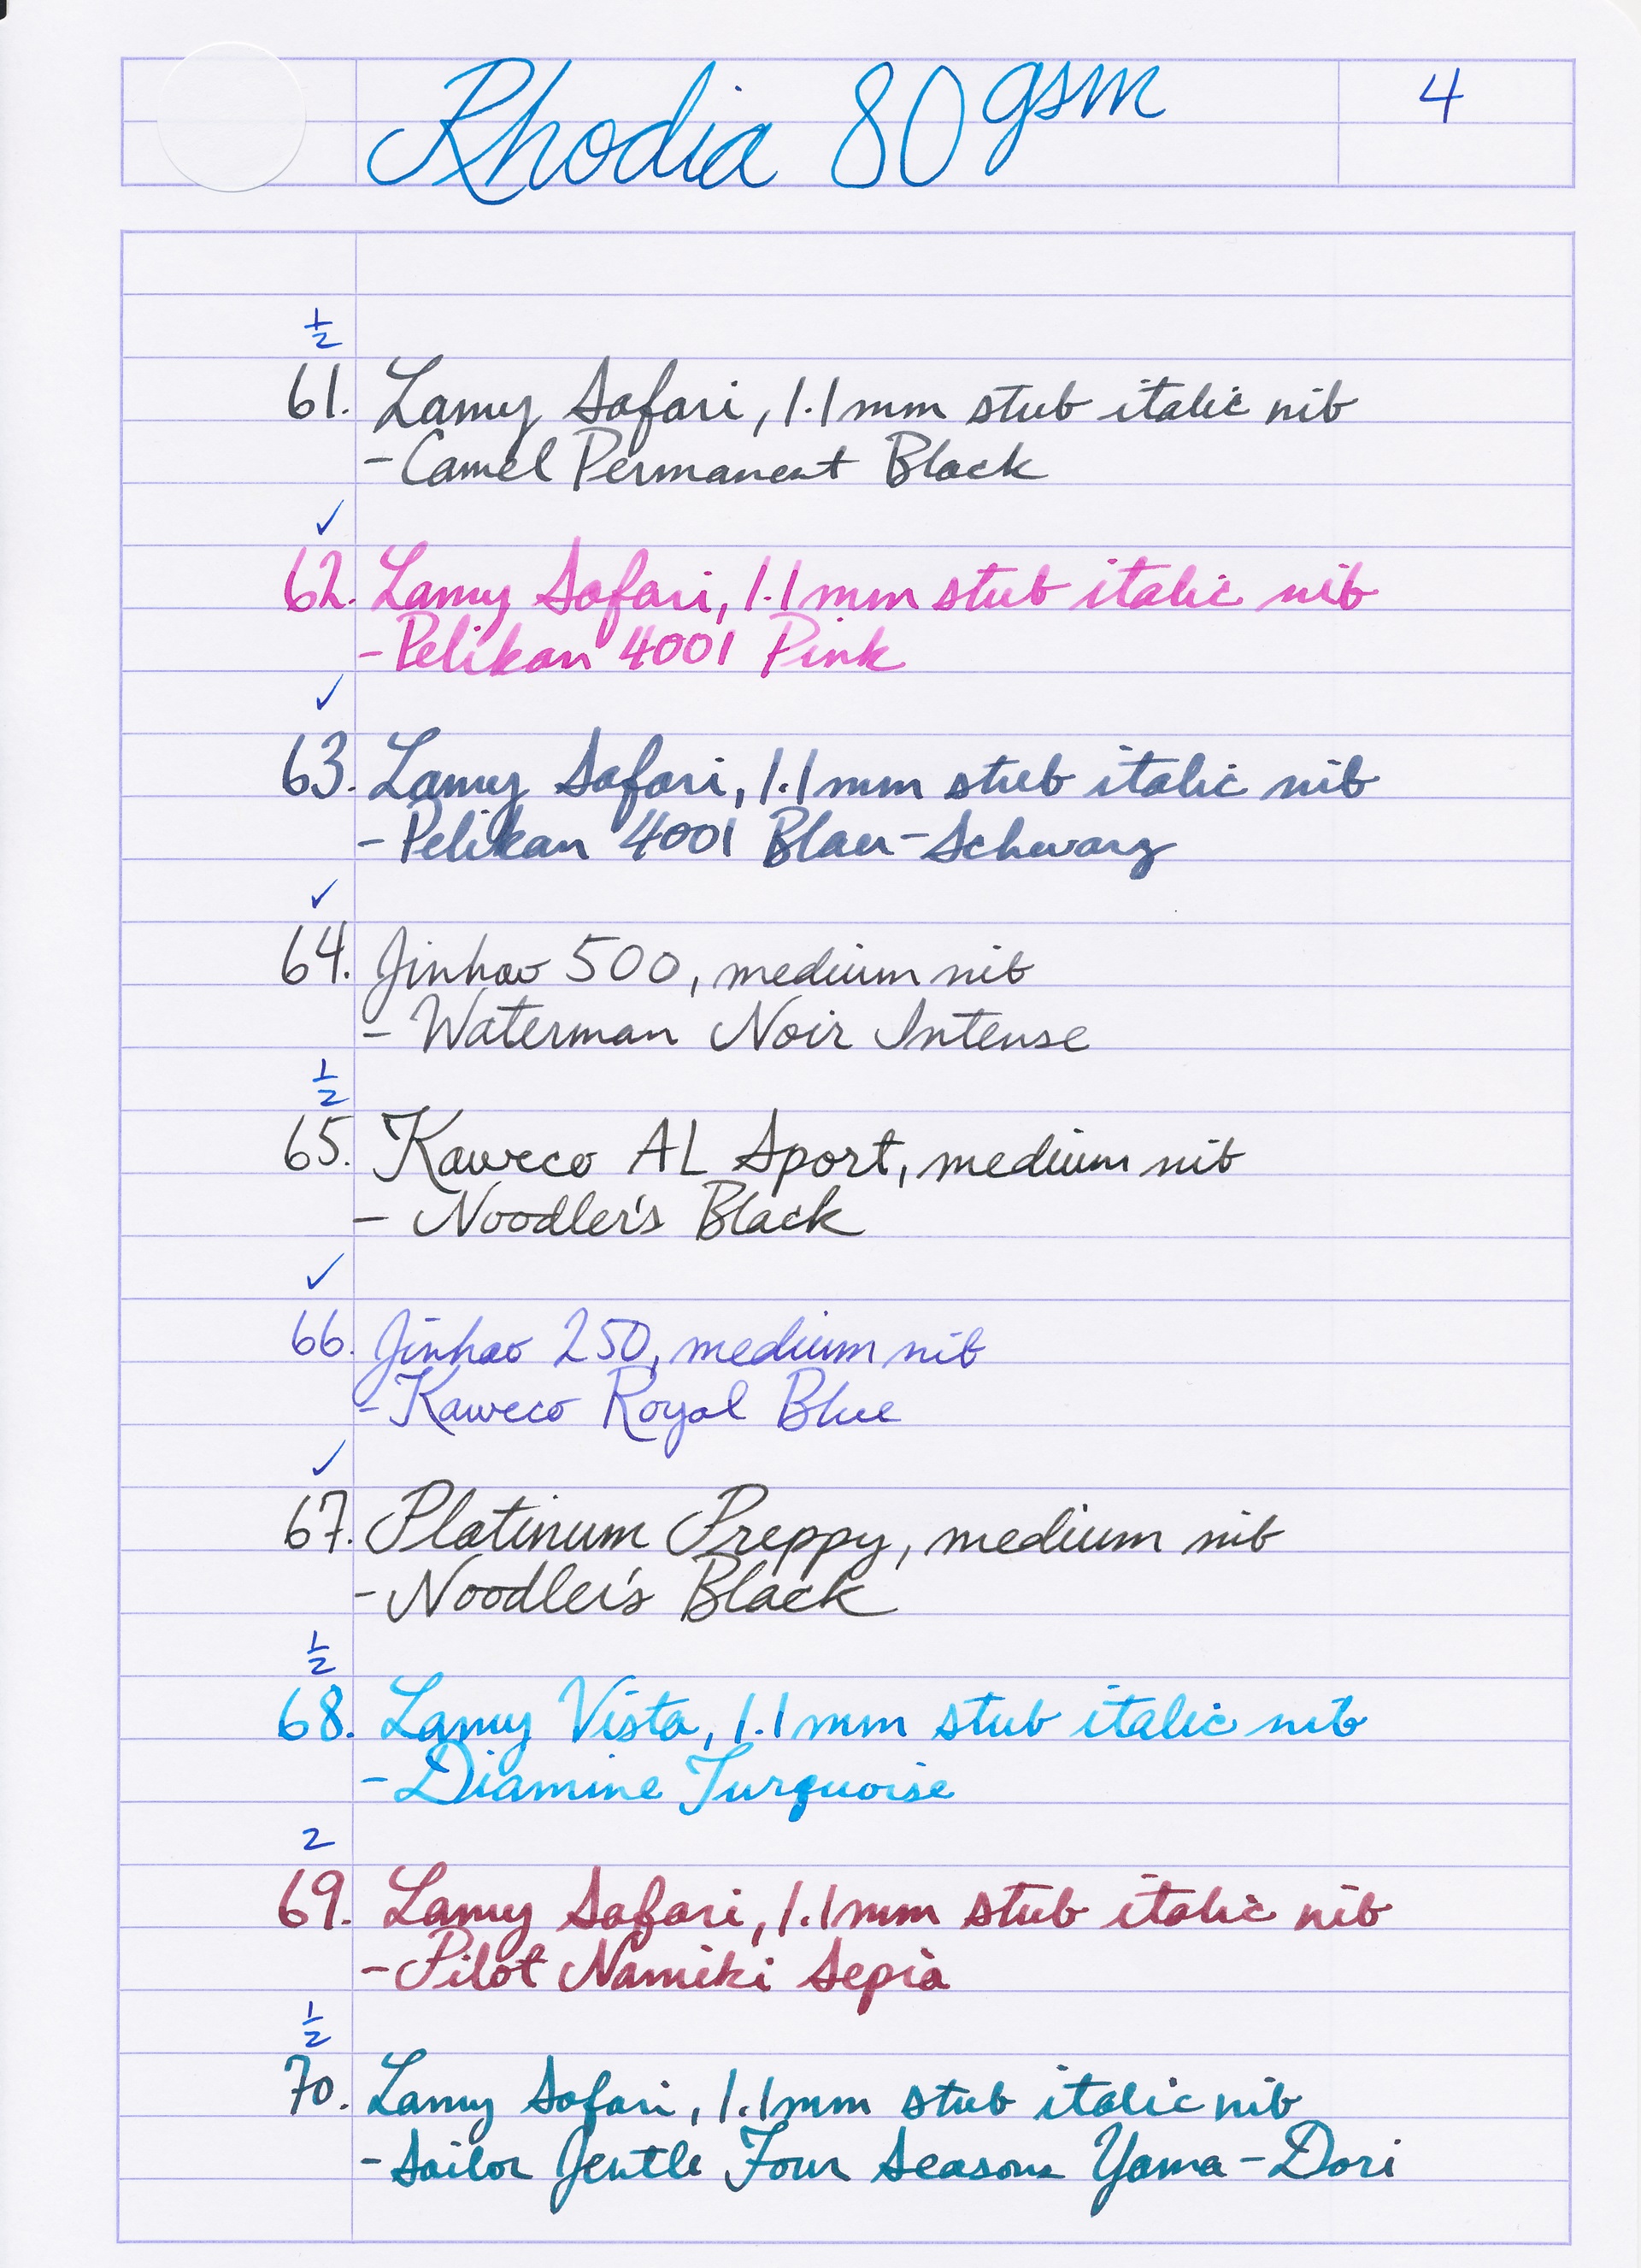 Rhodia 80 gsm
4
1/2
61. Lamy Safari, 1.1mm stub italic nib
- Camel Permanent Black
✓
62. Lamy Safari, 1.1mm stub italic nib
- Pelikan 4001 Pink
✓
63. Lamy Safari, 1.1mm stub italic nib
- Pelikan 4001 Blau-Schwarz
✓
64. Jinhao 500, medium nib
- Waterman Noir Intense
1/2
65. Kaweco AL Sport, medium nib
- Noodler's Black
✓
66. Jinhao 250, medium nib
- Kaweco Royal Blue
✓
67. Platinum Preppy, medium nib
- Noodler's Black
1/2
68. Lamy Vista, 1.1mm stub italic nib
- Diamine Turquoise
2
69. Lamy Safari, 1.1mm stub italic nib
- Pilot Namiki Sepia
1/2
70. Lamy Safari, 1.1mm stub italic nib
- Sailor Jentle Four Seasons Yama-Dori